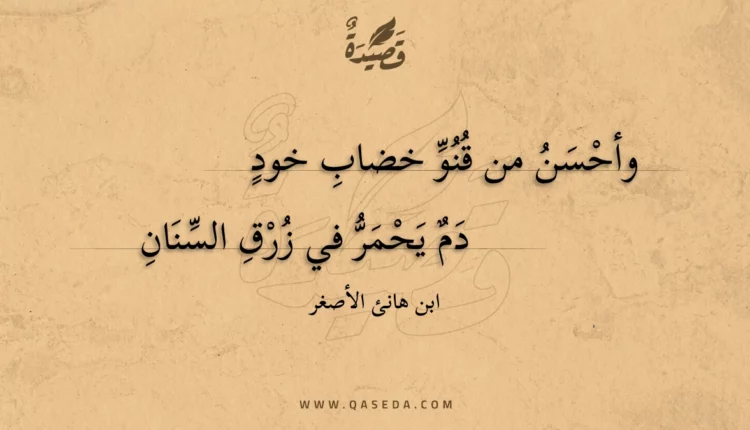 قَصِيْدَةٌ
وأحْسَنُ من قُنُوِّ خضابِ خودٍ
دَمٌ يَحْمَرُّ في زُرْقِ السِّنَانِ
ابن هانئ الأصغر
WWW.QASEDA.COM